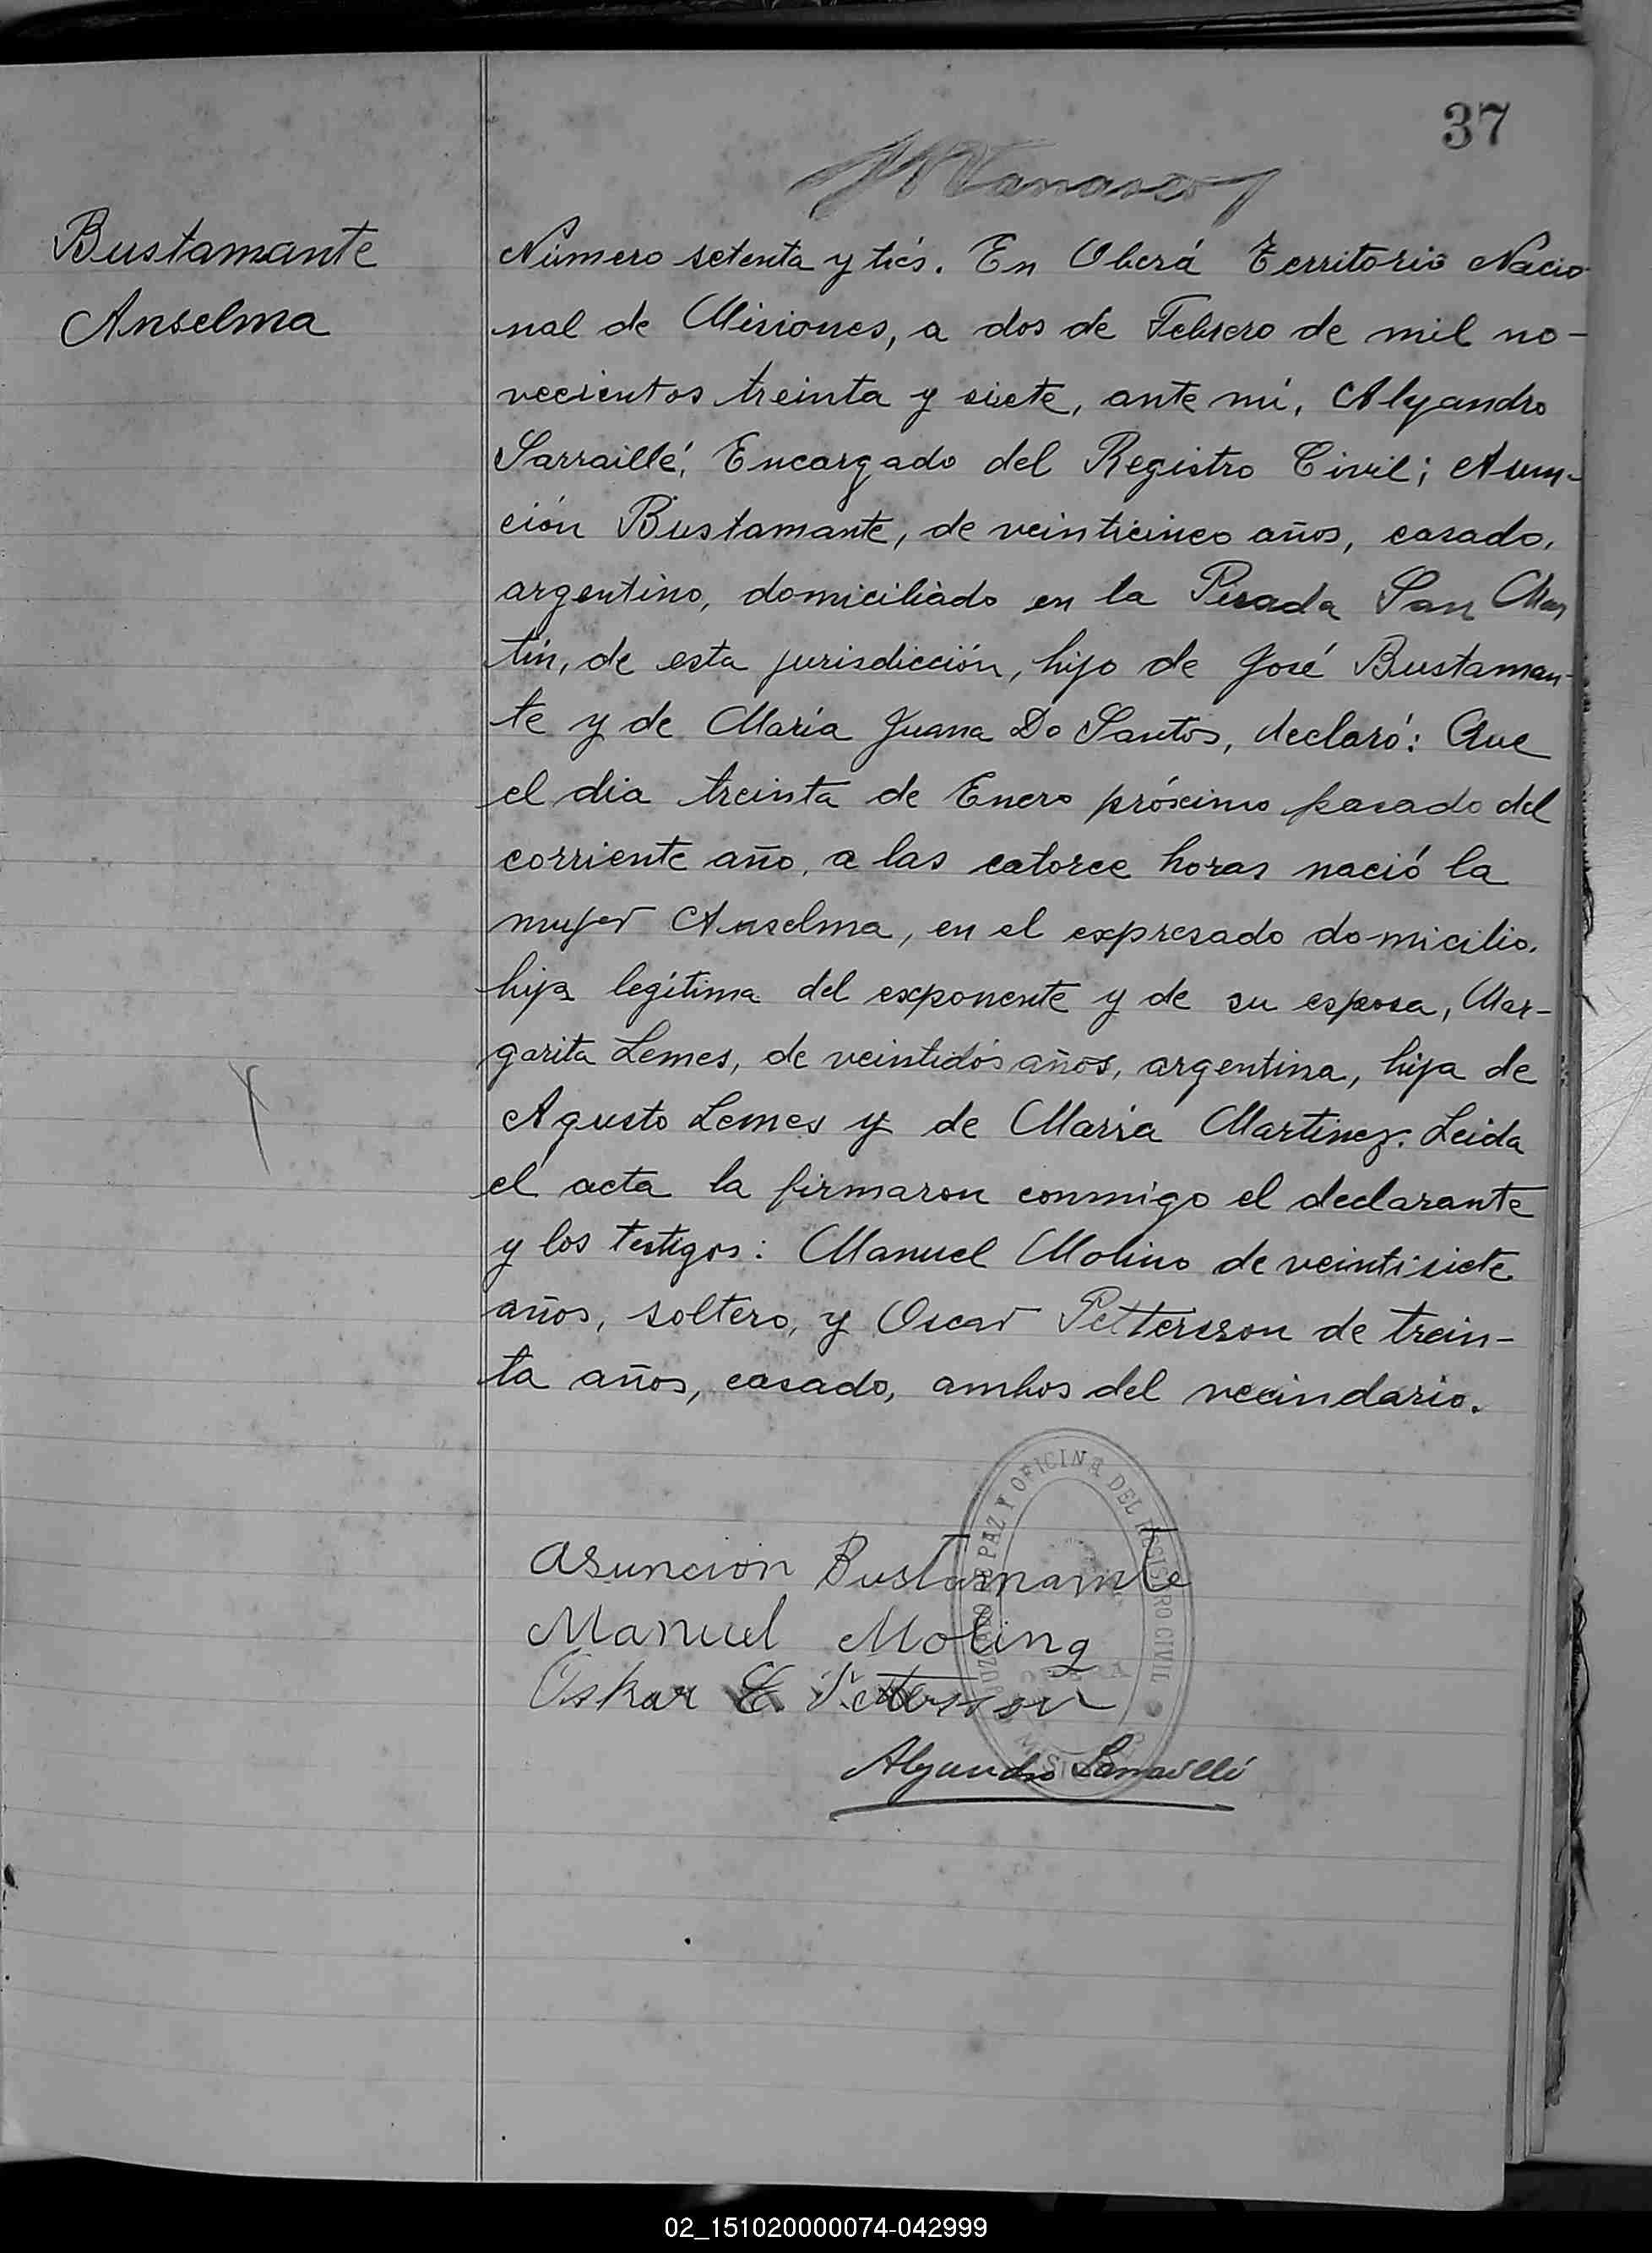 37
Bustamante
Anselma
Número setenta y trés. En Oberá Territorio Nacio-
nal de Misiones, a dos de Febrero de mil no-
vecientos treinta y siete, ante mí, Alejandro
Sarraillé, Encargado del Registro Civil; Asun-
ción Bustamante, de veinticinco años, casado,
argentino, domiciliado en la Picada San Mar
tín, de esta jurisdicción, hijo de José Bustaman-
te y de María Juana Do Santos, declaró: Que
el dia treinta de Enero próximo pasado del
corriente año, a las catorce horas nació la
mujer Anselma, en el expresado domicilio,
hija legítima del exponente y de su esposa, Mar-
garita Lemes, de veintidós años, argentina, hija de
Agusto Lemes y de María Martinez. Leida
el acta la firmaron conmigo el declarante
y los testigos: Manuel Molino de veintisiete
años, soltero, y Oscar Pettersson de trein-
ta años, casado, ambos del vecindario.
JUZGADO DE PAZ Y OFICINA DEL REGISTRO CIVIL
asuncion Bustamante
Manuel Molino
Oskar E. Pettersson
Alejandro Sarraillé
02_151020000074-042999